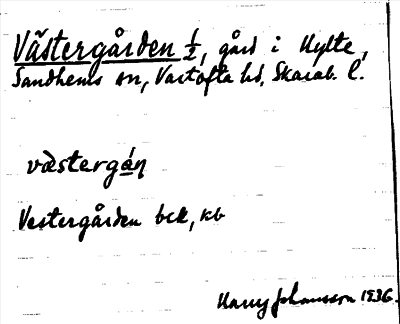 Västergården ½, gård i Hylte,
Sandhems sn, Vartofta hd, Skarab. l.
væstergán
Vestergården bck, kb
Harry Johansson 1936.